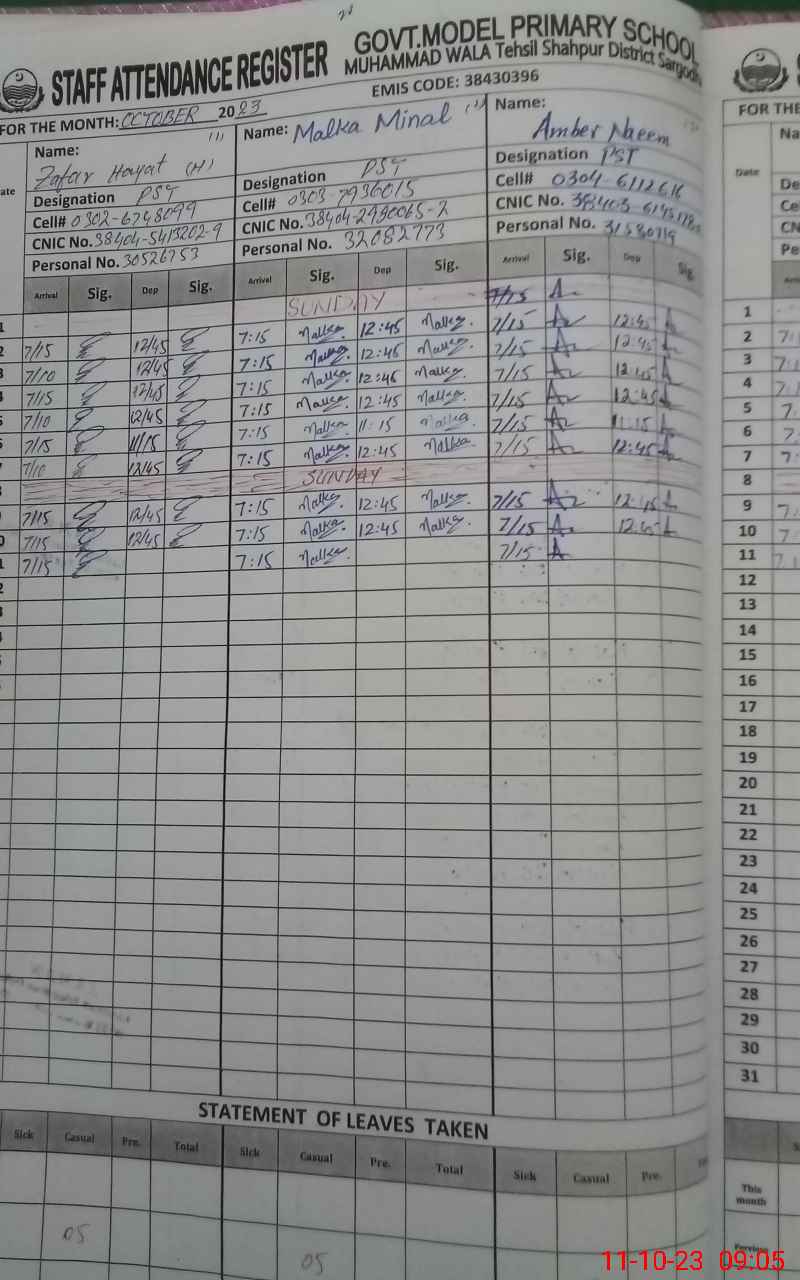 STAFF ATTENDANCE REGISTER
GOVT.MODEL PRIMARY SCHOOL
MUHAMMAD WALA Tehsil Shahpur District Sargodh
EMIS CODE: 38430396
FOR THE MONTH: OCTOBER 2023
Name: Zafar Hayat (H)
Designation PST
Cell# 0302-6748099
CNIC No. 38404-5413202-9
Personal No. 30526753
Name: Malka Minal
Designation PST
Cell# 0303-7936015
CNIC No. 38404-2990065-2
Personal No. 32082773
Name: Amber Naeem
Designation PST
Cell# 0304-6112616
CNIC No.
Personal No.
Arrival Sig. Dep Sig. Arrival Sig. Dep Sig. Arrival Sig. Dep Sig.
SUNDAY 7/15
7/15 12/45 7:15 Malka 12:45 Malka 7/15 12:45
7/10 12/45 7:15 Malka 12:45 Malka 7/15 12:45
7/15 12/45 7:15 Malka 12:45 Malka 7/15 12:45
7/10 12/45 7:15 Malka 12:45 Malka 7/15 12:45
7/15 11/15 7:15 Malka 11:15 Malka 7/15 11:15
7/10 12/45 7:15 Malka 12:45 Malka 7/15 12:45
SUNDAY
7/15 12/45 7:15 Malka 12:45 Malka 7/15 12:45
7/15 12/45 7:15 Malka 12:45 Malka 7/15 12:45
7/15 7:15 Malka 7/15
STATEMENT OF LEAVES TAKEN
Sick Casual Pre. Total Sick Casual Pre. Total Sick Casual Pre.
05 05
FOR THE
Date
1
2
3
4
5
6
7
8
9
10
11
12
13
14
15
16
17
18
19
20
21
22
23
24
25
26
27
28
29
30
31
This
month
11-10-23 09:05